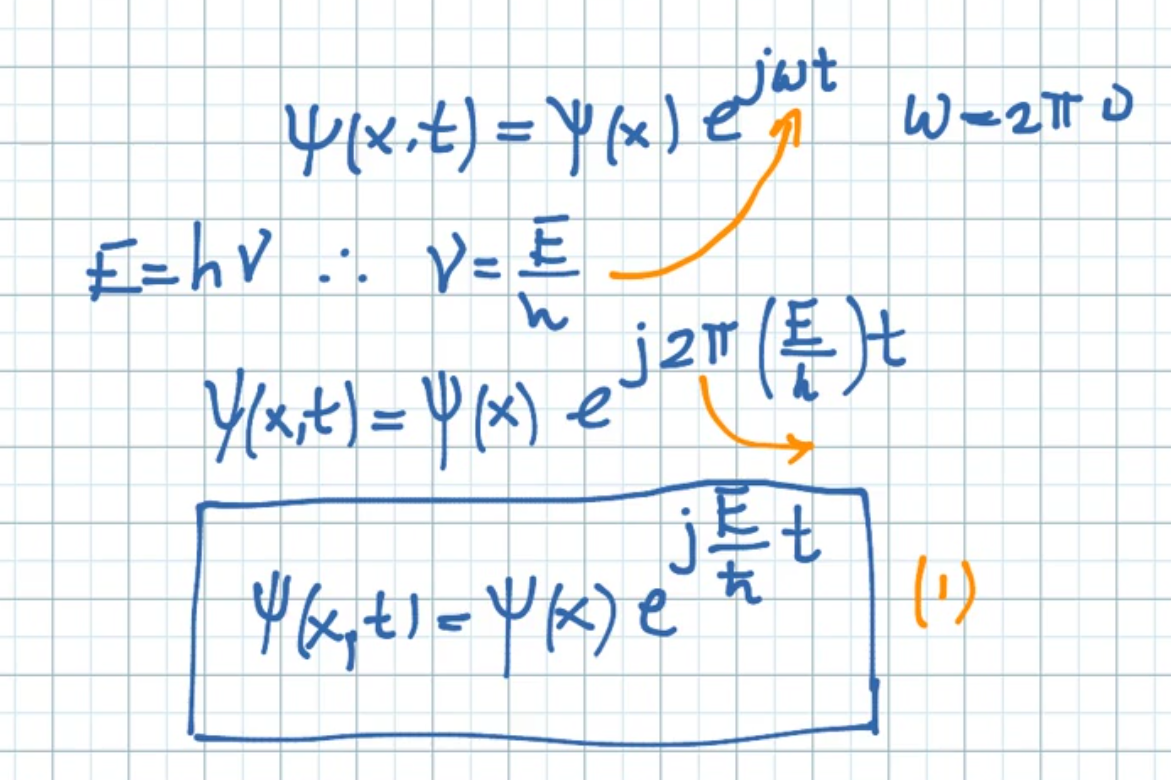 ψ(x,t) = ψ(x) e^{jωt} ω = 2πν
E = hν ∴ ν = E/h
ψ(x,t) = ψ(x) e^{j2π(E/h)t}
ψ(x,t) = ψ(x) e^{j(E/ħ)t} (1)